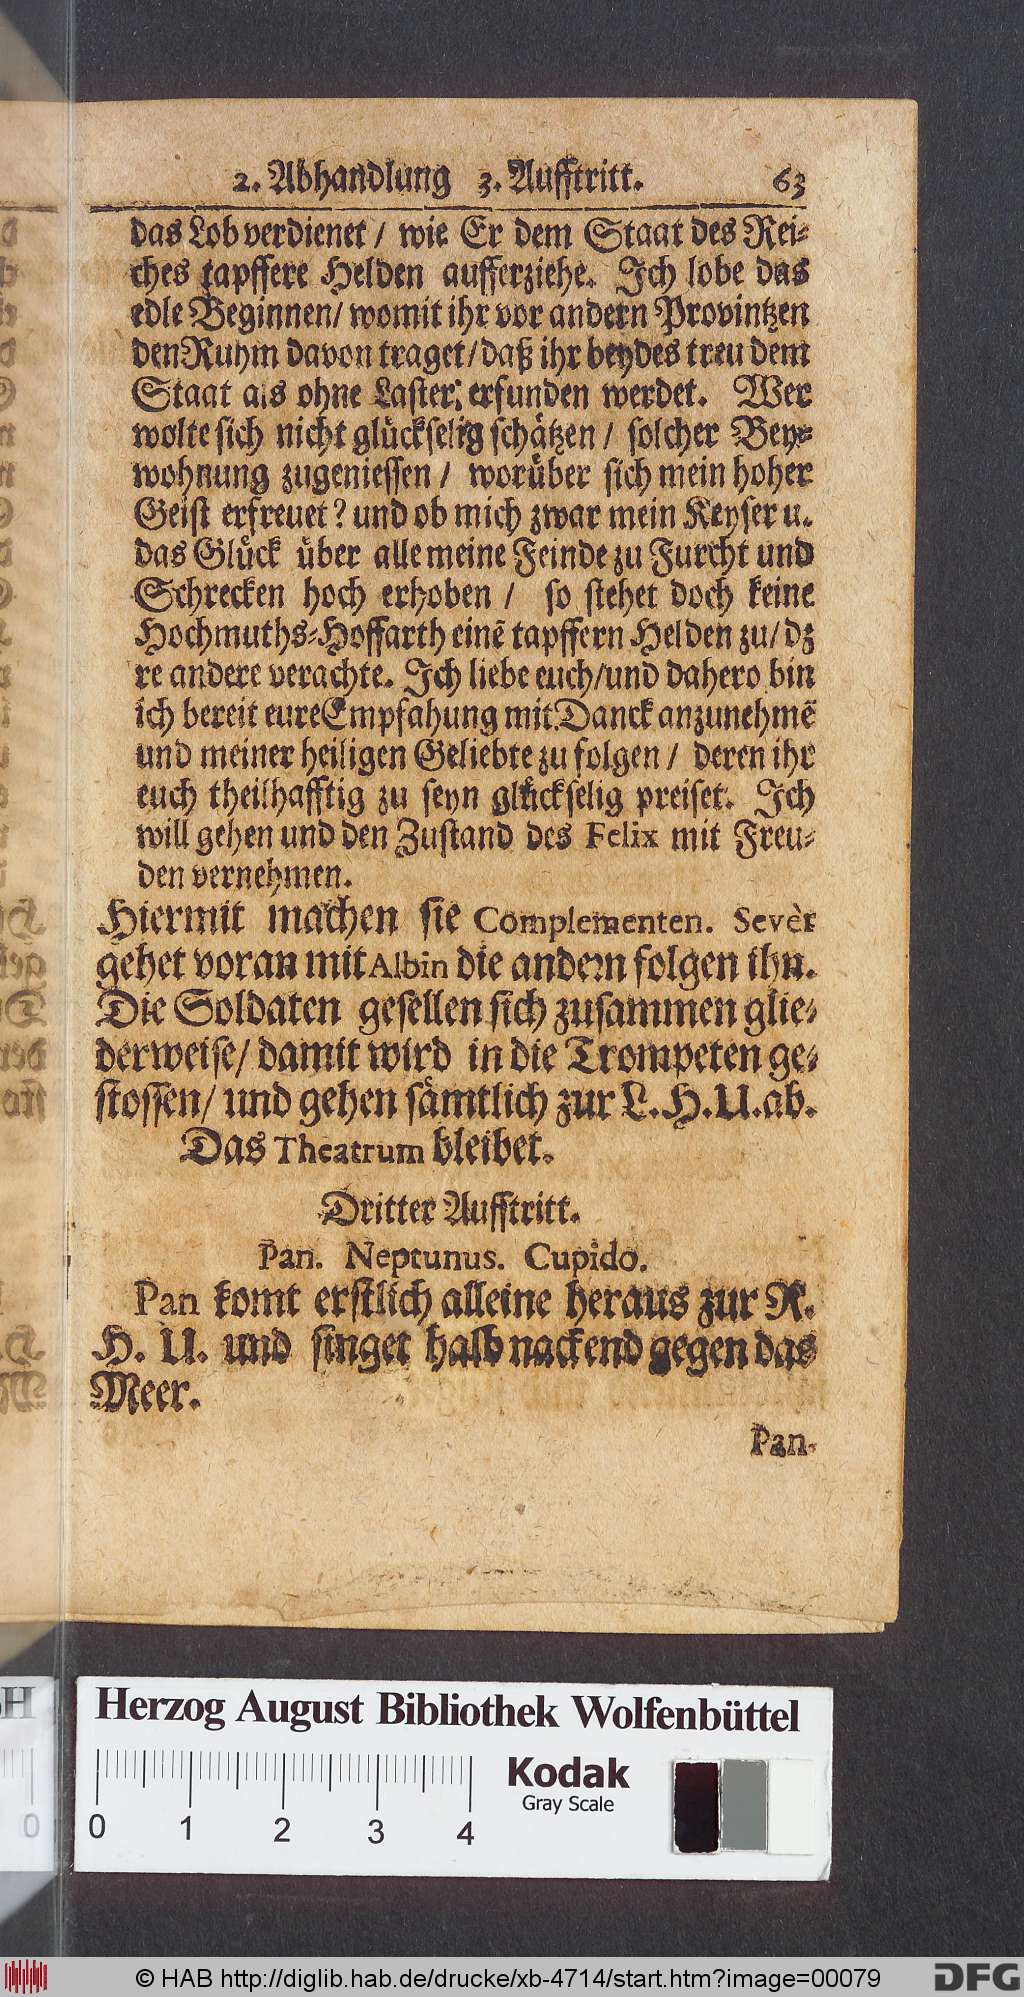 2. Abhandlung 3. Aufftritt. 63
das Lob verdienet / wie Er dem Staat des Rei-
ches tapffere Helden aufferziehe. Ich lobe das
edle Beginnen / womit ihr vor andern Provintzen
den Ruhm davon traget / daß ihr beydes treu dem
Staat als ohne Laster erfunden werdet. Wer
wolte sich nicht glückselig schätzen / solcher Bey-
wohnung zugeniessen / worüber sich mein hoher
Geist erfreuet? und ob mich zwar mein Keyser u.
das Glück über alle meine Feinde zu Furcht und
Schrecken hoch erhoben / so stehet doch keine
Hochmuths-Hoffarth einē tapffern Helden zu / dz
re andere verachte. Ich liebe euch / und dahero bin
ich bereit eure Empfahung mit Danck anzunehmē
und meiner heiligen Geliebte zu folgen / deren ihr
euch theilhafftig zu seyn glückselig preiset. Ich
will gehen und den Zustand des Felix mit Freu-
den vernehmen.
Hiermit machen sie Complementen. Sevèr
gehet voran mit Albin die andern folgen ihn.
Die Soldaten gesellen sich zusammen glie-
derweise / damit wird in die Trompeten ge-
stossen / und gehen sämtlich zur L. H. U. ab.
Das Theatrum bleibet.
Dritter Aufftritt.
Pan. Neptunus. Cupido.
Pan komt erstlich alleine heraus zur R.
H. U. und singet halb nackend gegen das
Meer.
Pan.
Herzog August Bibliothek Wolfenbüttel
Kodak
Gray Scale
0 0 1 2 3 4
© HAB http://diglib.hab.de/drucke/xb-4714/start.htm?image=00079
DFG